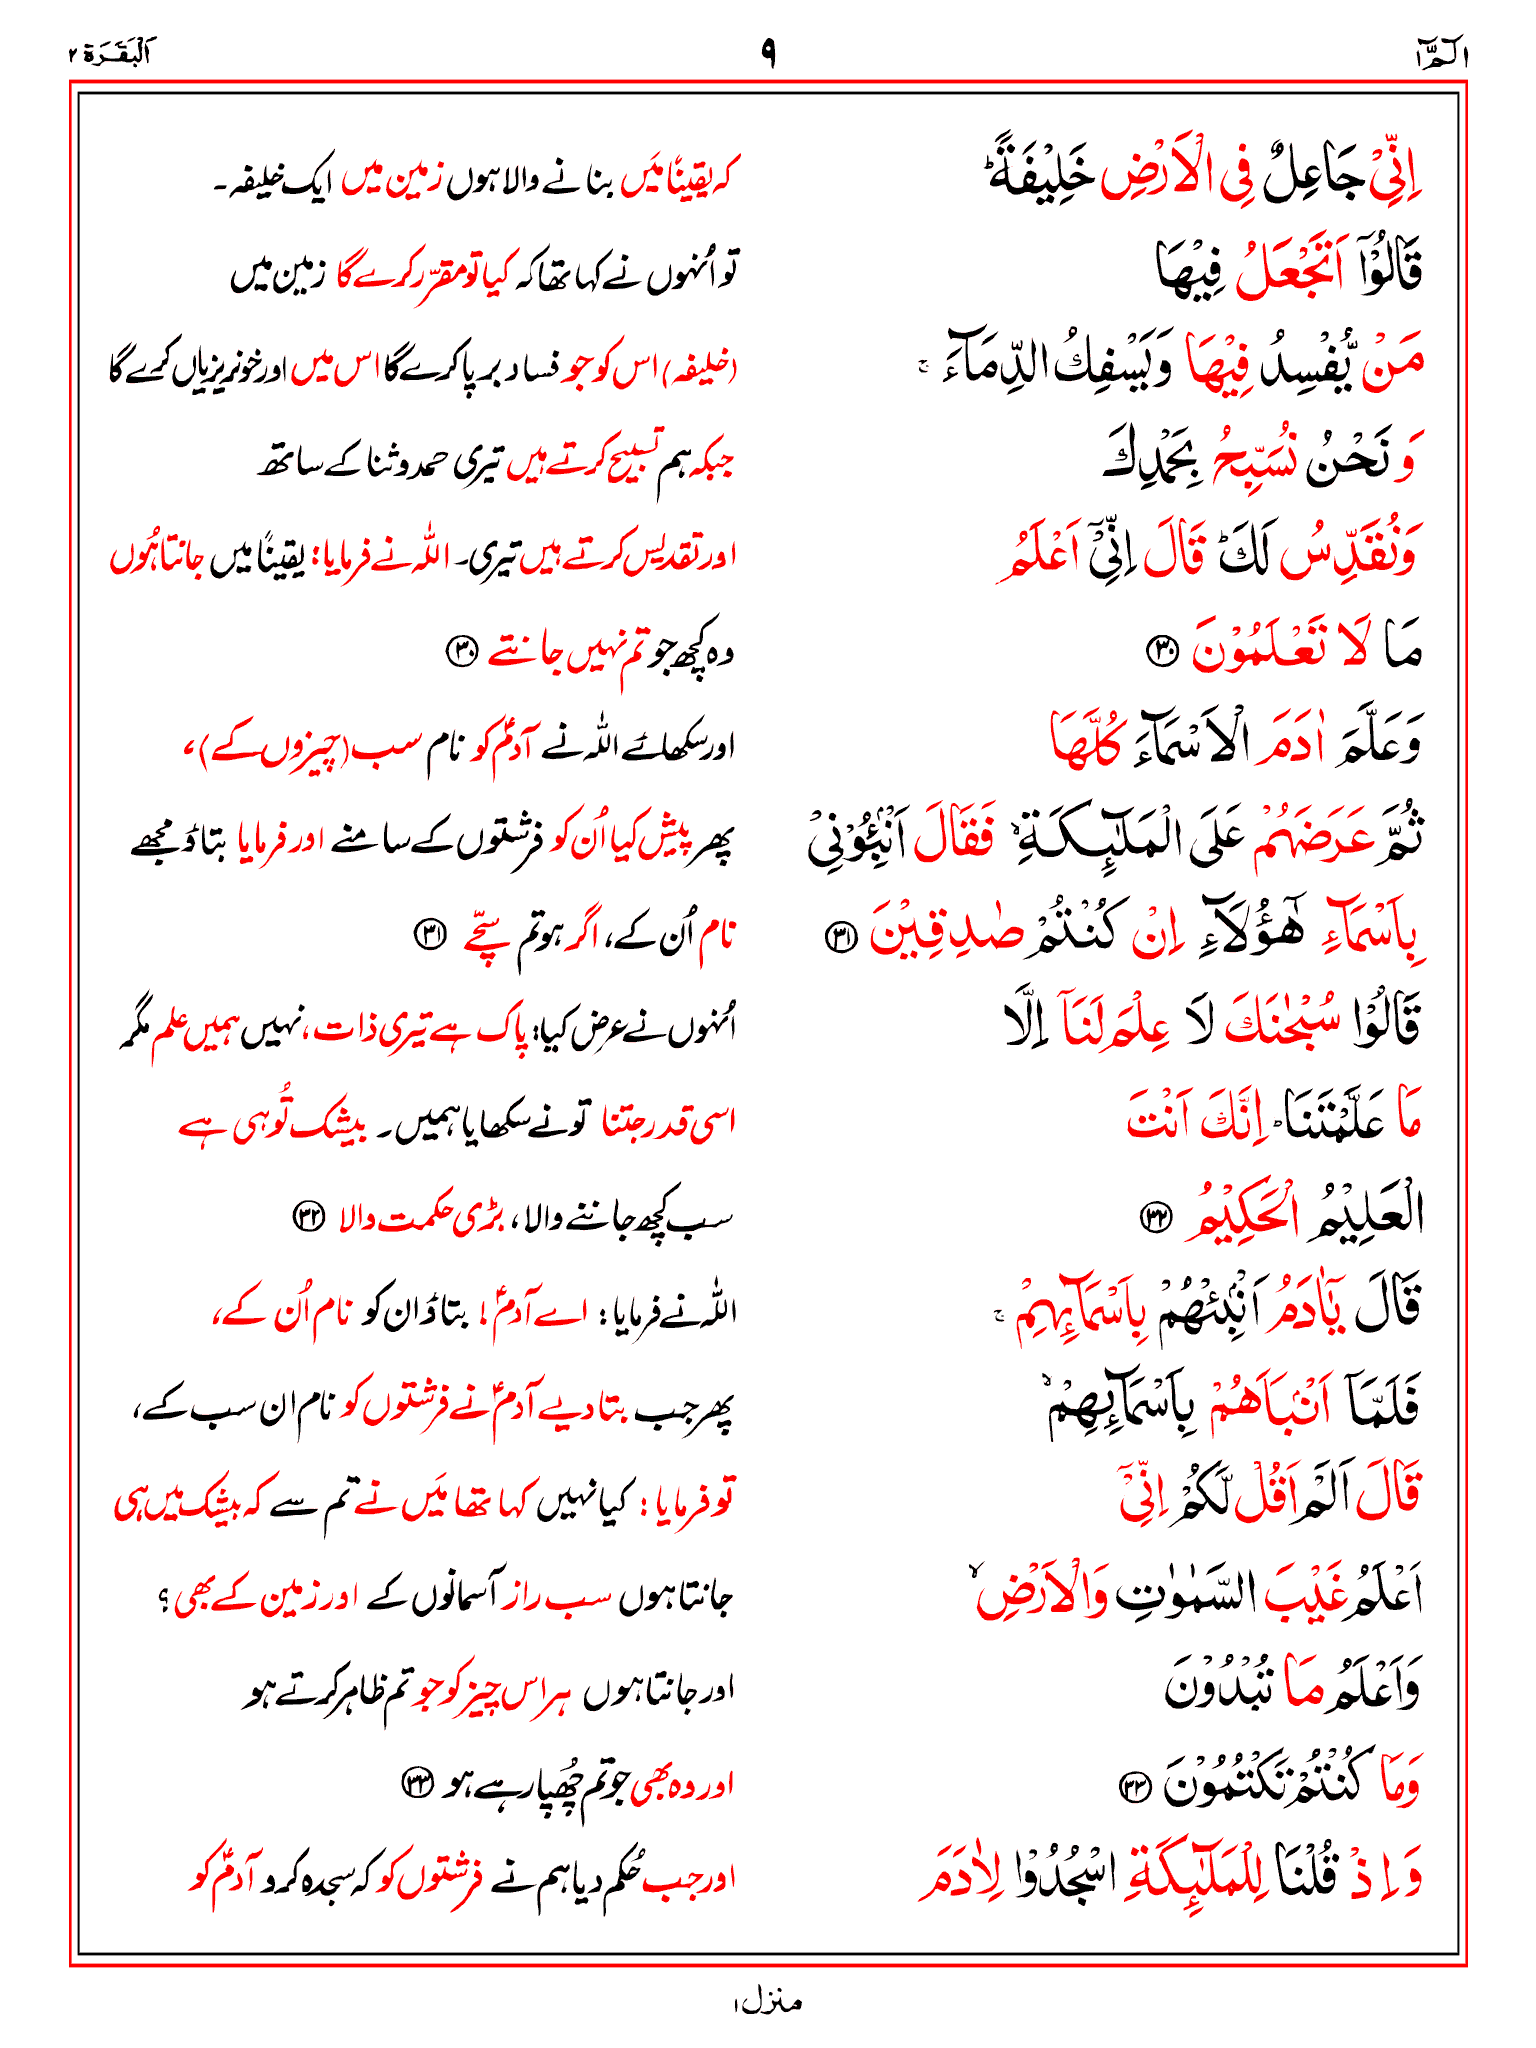 الٓمّٓ ۱ ۹ اَلْبَقَرَة ۲
اِنِّیْ جَاعِلٌ فِی الْاَرْضِ خَلِیْفَةً ؕ کہ یقینًا مَیں بنانے والا ہوں زمین میں ایک خلیفہ۔
قَالُوْۤا اَتَجْعَلُ فِیْهَا تو اُنہوں نے کہا تھا کہ کیا تو مقرّر کرے گا زمین میں
مَنْ یُّفْسِدُ فِیْهَا وَیَسْفِكُ الدِّمَآءَ ۚ (خلیفہ) اس کو جو فساد برپا کرے گا اس میں اور خونریزیاں کرے گا
وَ نَحْنُ نُسَبِّحُ بِحَمْدِكَ جبکہ ہم تسبیح کرتے ہیں تیری حمد و ثنا کے ساتھ
وَنُقَدِّسُ لَكَ ؕ قَالَ اِنِّیْۤ اَعْلَمُ اور تقدیس کرتے ہیں تیری۔ اللہ نے فرمایا: یقینًا میں جانتا ہُوں
مَا لَا تَعْلَمُوْنَ ۳۰ وہ کچھ جو تم نہیں جانتے ۳۰
وَعَلَّمَ اٰدَمَ الْاَسْمَآءَ كُلَّهَا اور سکھائے اللہ نے آدمؑ کو نام سب (چیزوں کے)،
ثُمَّ عَرَضَهُمْ عَلَی الْمَلٰٓىِٕكَةِ ۙ فَقَالَ اَنْۢبِـُٔوْنِیْ پھر پیش کیا اُن کو فرشتوں کے سامنے اور فرمایا بتاؤ مجھے
بِاَسْمَآءِ هٰۤؤُلَآءِ اِنْ كُنْتُمْ صٰدِقِیْنَ ۳۱ نام اُن کے، اگر ہو تم سچّے ۳۱
قَالُوْا سُبْحٰنَكَ لَا عِلْمَ لَنَاۤ اِلَّا اُنہوں نے عرض کیا: پاک ہے تیری ذات، نہیں ہمیں علم مگر
مَا عَلَّمْتَنَا ؕ اِنَّكَ اَنْتَ اسی قدر جتنا تو نے سکھایا ہمیں۔ بیشک تُو ہی ہے
الْعَلِیْمُ الْحَكِیْمُ ۳۲ سب کچھ جاننے والا، بڑی حکمت والا ۳۲
قَالَ یٰۤاٰدَمُ اَنْۢبِئْهُمْ بِاَسْمَآىِٕهِمْ ۚ اللہ نے فرمایا: اے آدمؑ! بتاؤ ان کو نام اُن کے،
فَلَمَّاۤ اَنْۢبَاَهُمْ بِاَسْمَآىِٕهِمْ ۙ پھر جب بتا دیے آدمؑ نے فرشتوں کو نام ان سب کے،
قَالَ اَلَمْ اَقُلْ لَّكُمْ اِنِّیْۤ تو فرمایا: کیا نہیں کہا تھا مَیں نے تم سے کہ بیشک میں ہی
اَعْلَمُ غَیْبَ السَّمٰوٰتِ وَالْاَرْضِ ۙ جانتا ہوں سب راز آسمانوں کے اور زمین کے بھی؟
وَاَعْلَمُ مَا تُبْدُوْنَ اور جانتا ہوں ہر اس چیز کو جو تم ظاہر کرتے ہو
وَمَا كُنْتُمْ تَكْتُمُوْنَ ۳۳ اور وہ بھی جو تم چُھپا رہے ہو ۳۳
وَ اِذْ قُلْنَا لِلْمَلٰٓىِٕكَةِ اسْجُدُوْا لِاٰدَمَ اور جب حُکم دیا ہم نے فرشتوں کو کہ سجدہ کرو آدمؑ کو
منزل ۱